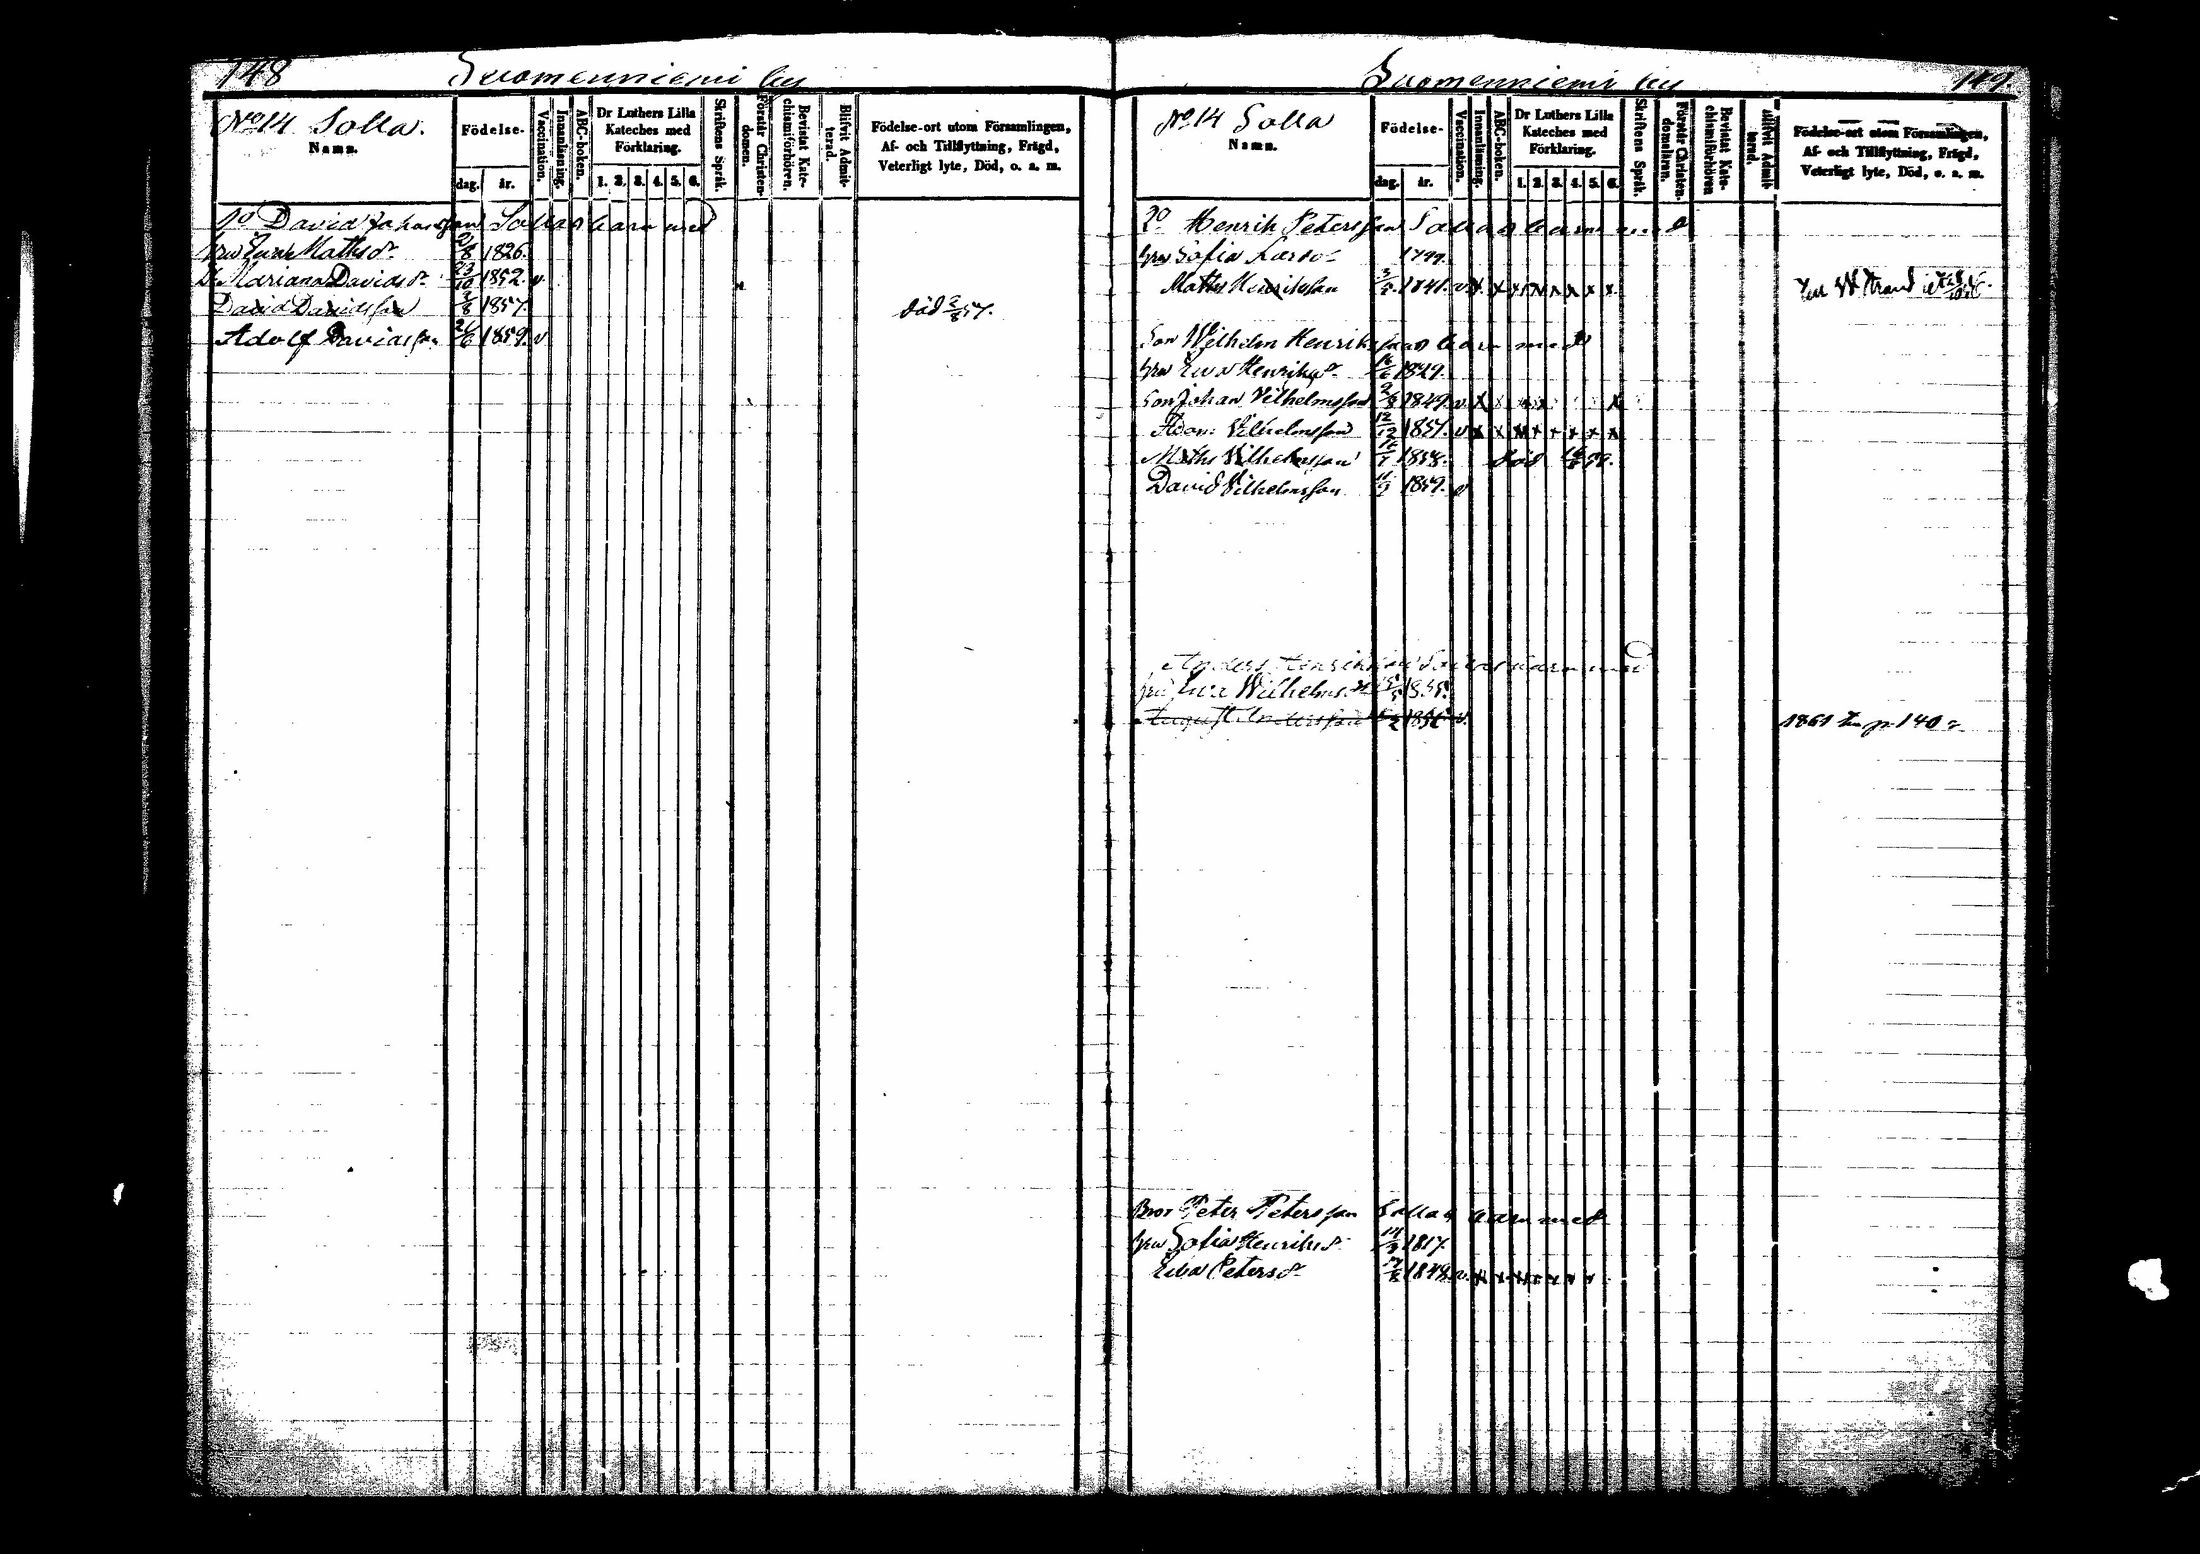 148 Suomenniemi by
No 14 Solla.
Namn.
Födelse-
dag. år.
Vaccination.
Innanläsning.
ABC-boken.
Dr Luthers Lilla
Kateches med
Förklaring.
1. 2. 3. 4. 5. 6.
Skriftens Språk.
Förstår Christen-
domen.
Bevistat Kate-
chismiförhören.
Blifvit Admit-
terad.
Födelse-ort utom Församlingen,
Af- och Tillflyttning, Frägd,
Veterligt lyte, Död, o. s. m.
1o David Johansson Sollas barn med
hru Ewa Mathsdr 2/8 1826.
Dr Mariana Davidsdr 23/10 1852. v
David Davidsson 2/8 1857. död 2/8 57.
Adolf Davidsson 26/6 1859. v
Suomenniemi by 149.
No 14 Solla
Namn.
Födelse-
dag. år.
Vaccination.
Innanläsning.
ABC-boken.
Dr Luthers Lilla
Kateches med
Förklaring.
1. 2. 3. 4. 5. 6.
Skriftens Språk.
Förstår Christen-
domsläran.
Bevistat Kate-
chismiförhören
Blifvit Admit-
terad.
Födelse-ort utom Församlingen,
Af- och Tillflyttning, Frägd,
Veterligt lyte, Död, o. s. m.
2o Henrik Petersson Sollas barn med
hru Sofia Larsdr 1799.
Maths Henriksson 3/5 1841. v x x x x x x x x
Son Wilhelm Henrikssons barn med
hru Ewa Henriksdr 16/6 1829.
Son Johan Vilhelmsson 1849. v x x x x x
Adam Vilhelmsson 12/12 1851. v x x x x x x x x
Maths Vilhelmsson 1858. död 59.
David Vilhelmsson 11/9 1859. v
Anders Henriksson Sollas barn med
hru Ewa Wilhelmsdr 1835.
August Andersson 1856 v. 1861 p 140
Bror Peter Petersson Sollas barn med
hru Sofia Henriksdr 1817.
Ewa Petersdr 1848. v. x x x x x x x